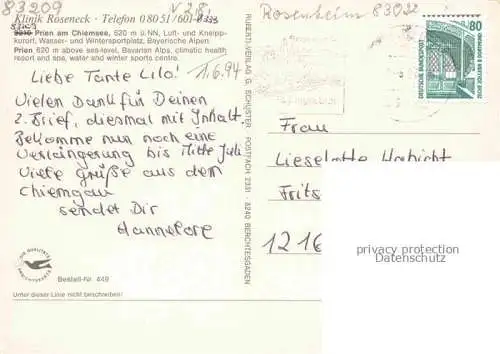 83209
V 28
Rosenheim 83022
Klinik Roseneck · Telefon 08051/601-
83209
8210 Prien am Chiemsee, 520 m ü.NN, Luft- und Kneipp-
kurort, Wasser- und Wintersportplatz, Bayerische Alpen
Prien 520 m above sea-level, Bavarian Alps, climatic health
resort and spa, water and winter sports centre.
11.6.94
Liebe Tante Lilo!
Vielen Dank für Deinen
2. Brief, diesmal mit Inhalt.
Bekomme nun noch eine
Verlängerung bis Mitte Juli
Viele Grüße aus dem
Chiemgau
sendet Dir
Hannelore
Bestell-Nr. 449
Unter dieser Linie nicht beschreiben!
RUBERTI-VERLAG G. SCHUSTER POSTFACH 2331 · 8240 BERCHTESGADEN
DEUTSCHE BUNDESPOST
80
Frau
Lieselotte Habicht
Frits
1216
privacy protection
Datenschutz